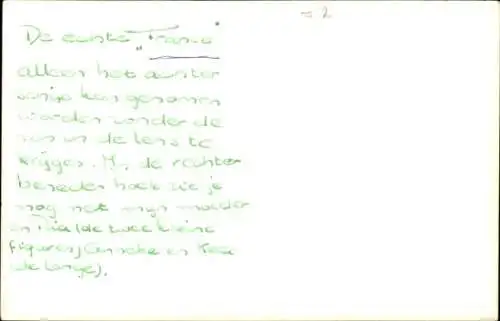 = 2
De eerste "Franse"
alleen het achter
kan genomen
worden zonder de
zon in de lens te
krijgen. In de rechter
beneden hoek zie je
nog net mijn moeder
en Mia (de twee kleine
figuren) en Kees
de Lange).